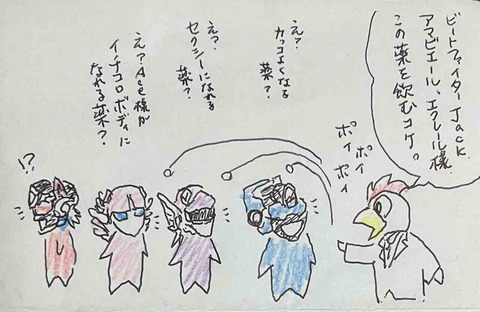 ビートファイターJack
アマビエール、エクレール様
この薬を飲むコケ。
ポイ
ポイ
ポイ
え？
カッコよくなる
薬？
え？
セクシーになれる
薬？
え？Ace様が
イチコロボディに
なれる薬？
!?